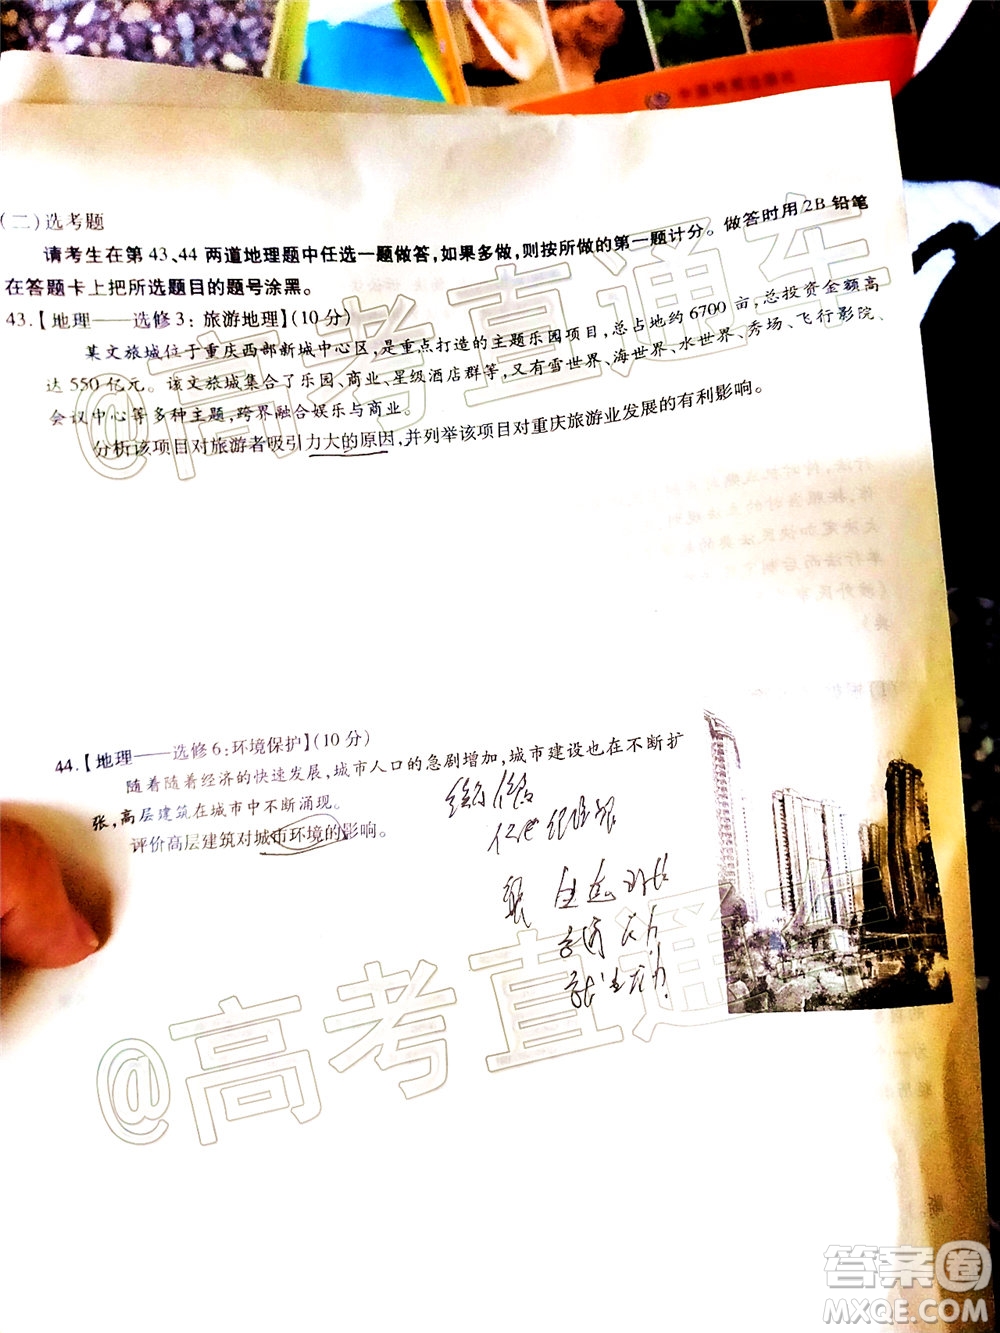 (二)选考题
请考生在第 43、44 两道地理题中任选一题做答,如果多做,则按所做的第一题计分。做答时用 2B 铅笔
在答题卡上把所选题目的题号涂黑。
43.【地理——选修 3：旅游地理】(10 分)
某文旅城位于重庆西部新城中心区,是重点打造的主题乐园项目,总占地约 6700 亩,总投资金额高
达 550 亿元。该文旅城集合了乐园、商业、星级酒店群等,又有雪世界、海世界、水世界、秀场、飞行影院、
会议中心等多种主题,跨界融合娱乐与商业。
分析该项目对旅游者吸引力大的原因,并列举该项目对重庆旅游业发展的有利影响。
44.【地理——选修 6：环境保护】(10 分)
随着随着经济的快速发展,城市人口的急剧增加,城市建设也在不断扩
张,高层建筑在城市中不断涌现。
评价高层建筑对城市环境的影响。
@高考直通车
@高考直通车
答案圈
MXQE.COM